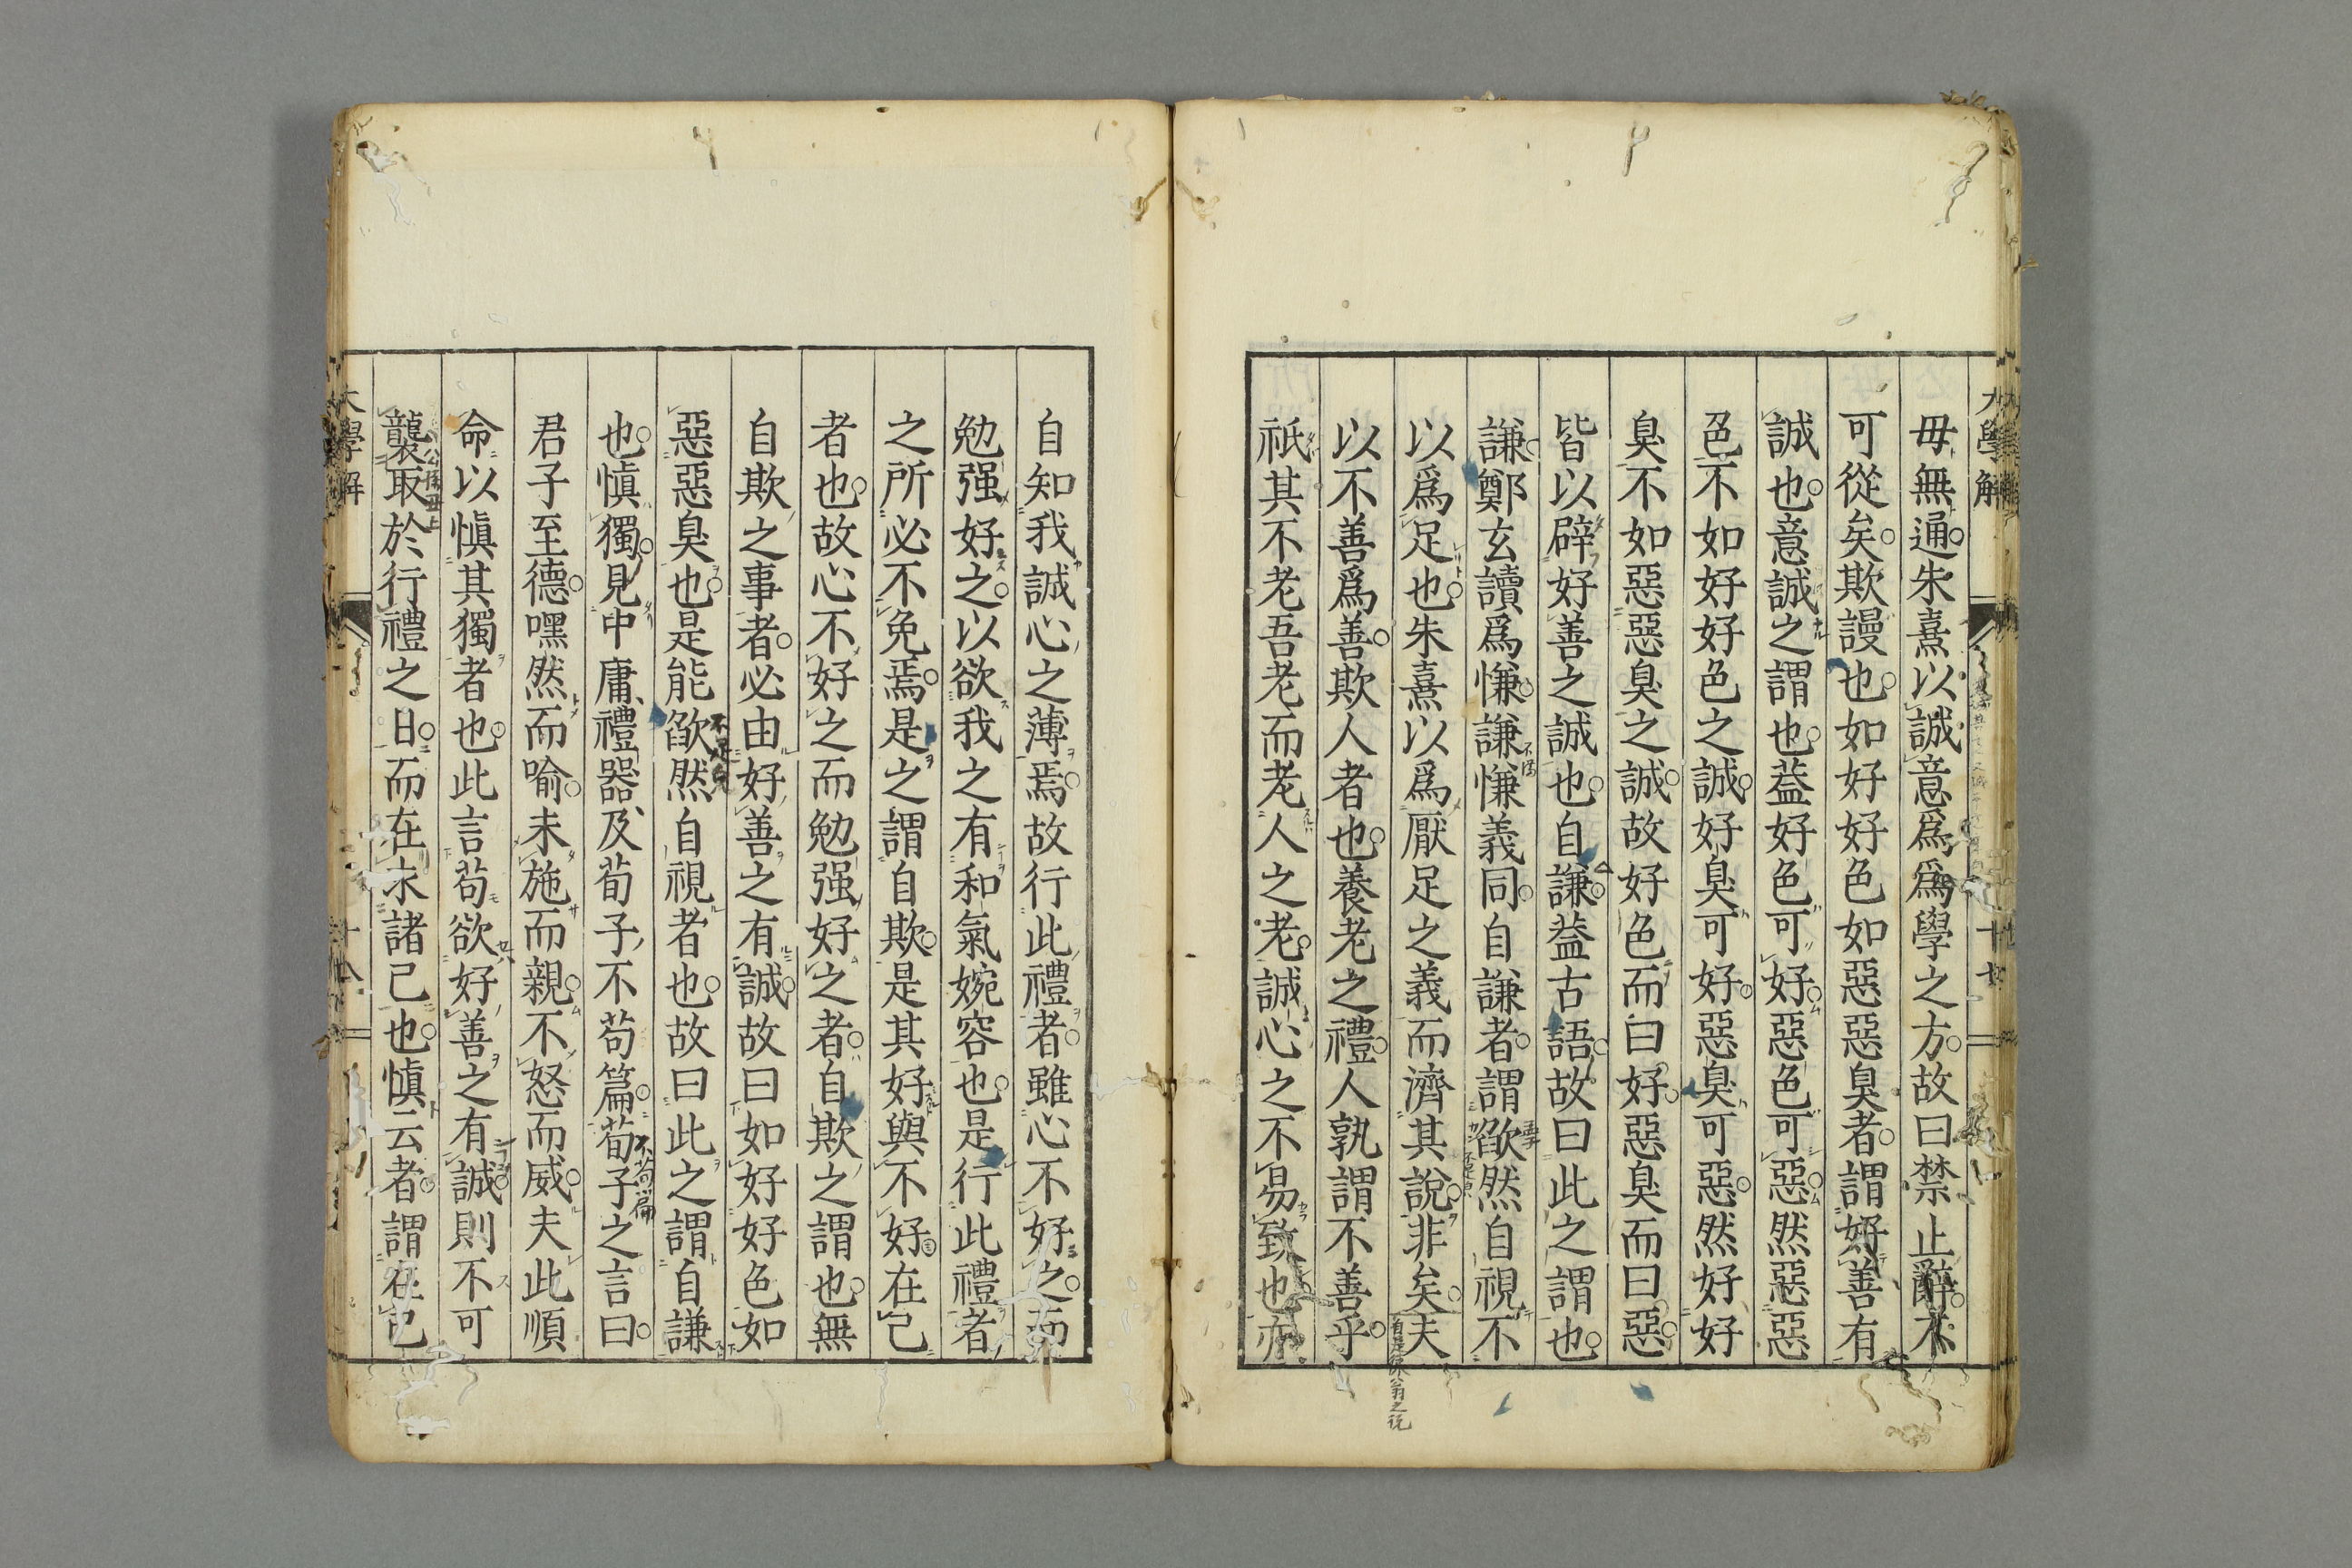 大學解
毋無通朱熹以誠意爲爲學之方故曰禁止辭不
可從矣欺謾也如好好色如惡惡臭者謂好善有
誠也意誠之謂也葢好色可好惡色可惡然惡惡
色不如好好色之誠好臭可好惡臭可惡然好好
臭不如惡惡臭之誠故好色而曰好惡臭而曰惡
皆以辟好善之誠也自謙葢古語故曰此之謂也
謙鄭玄讀爲慊謙慊義同自謙者謂欿然自視不
以爲足也朱熹以爲厭足之義而濟其說非矣夫
以不善爲善欺人者也養老之禮人孰謂不善乎
祇其不老吾老而老人之老誠心之不易致也亦
自知我誠心之薄焉故行此禮者雖心不好之而
勉强好之以欲我之有和氣婉容也是行此禮者
之所必不免焉是之謂自欺是其好與不好在己
者也故心不好之而勉强好之者自欺之謂也無
自欺之事者必由好善之有誠故曰如好好色如
惡惡臭也是能欿然自視者也故曰此之謂自謙
也愼獨見中庸禮器及荀子不苟篇荀子之言曰
君子至德嘿然而喻未施而親不怒而威夫此順
命以愼其獨者也此言苟欲好善之有誠則不可
襲取於行禮之日而在求諸己也愼云者謂在己
大學解
十八